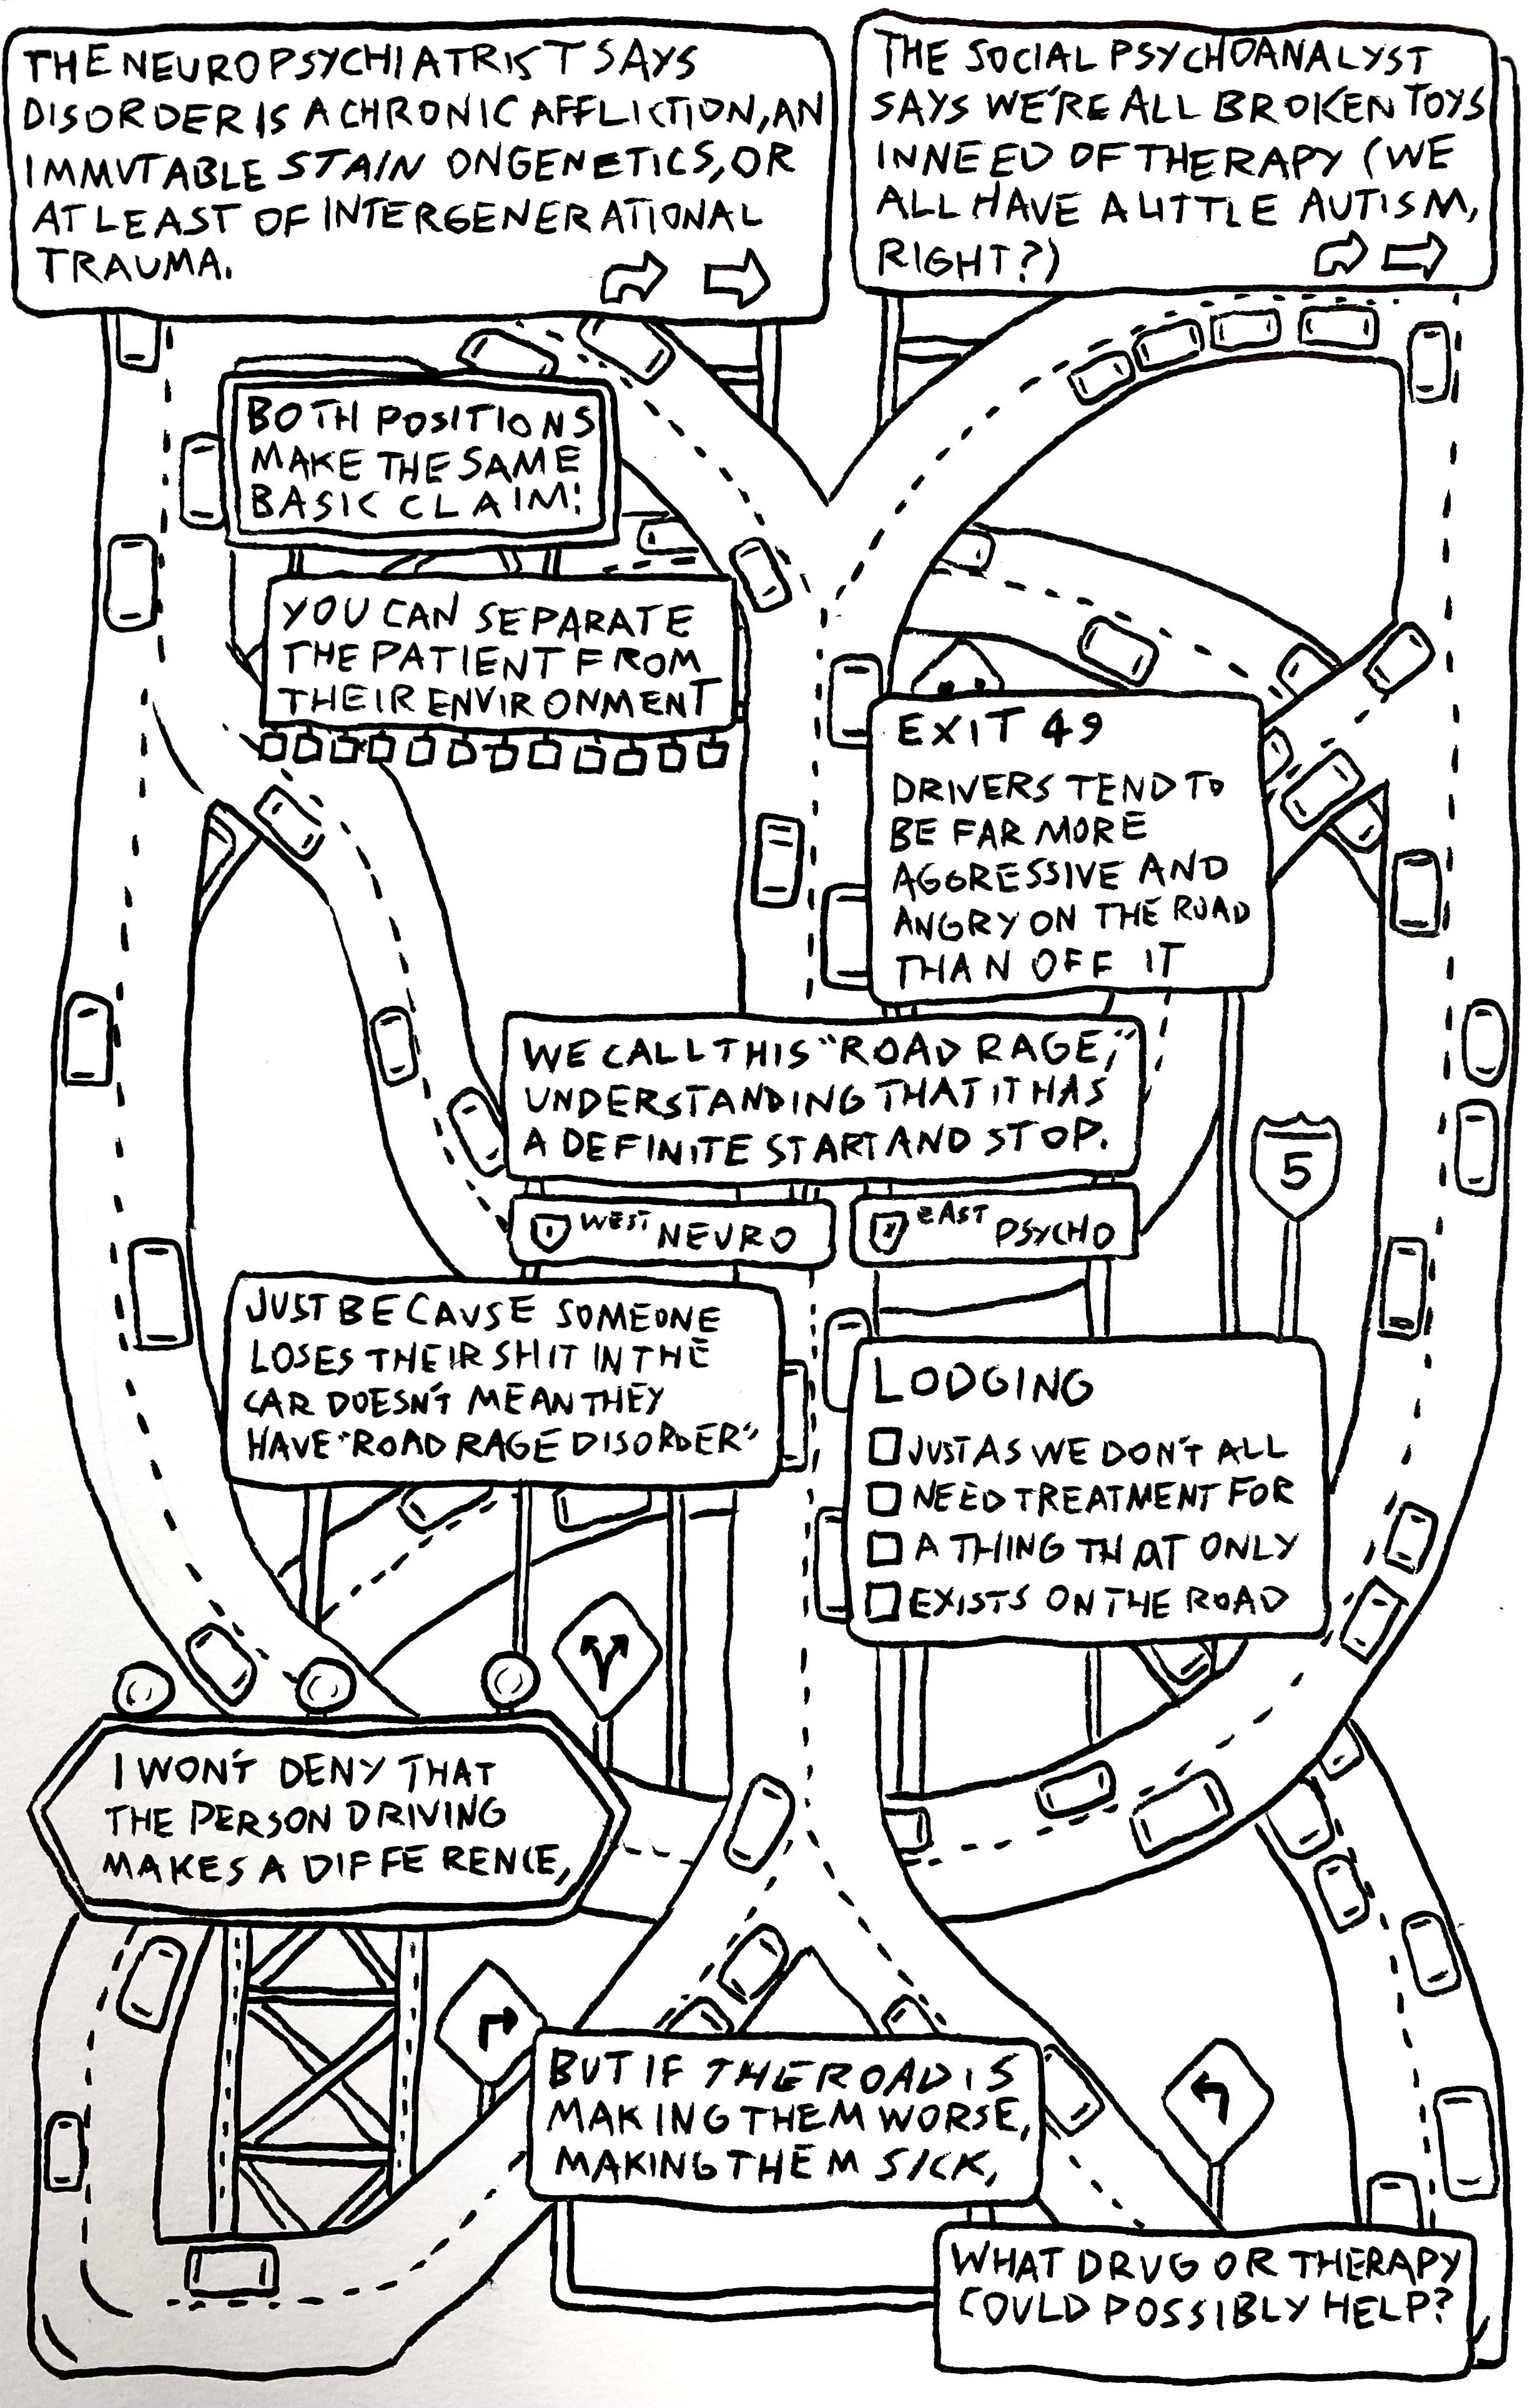 THE NEUROPSYCHIATRIST SAYS
DISORDER IS A CHRONIC AFFLICTION, AN
IMMUTABLE STAIN ON GENETICS, OR
AT LEAST OF INTERGENERATIONAL
TRAUMA.
THE SOCIAL PSYCHOANALYST
SAYS WE'RE ALL BROKEN TOYS
IN NEED OF THERAPY (WE
ALL HAVE A LITTLE AUTISM,
RIGHT?)
BOTH POSITIONS
MAKE THE SAME
BASIC CLAIM:
YOU CAN SEPARATE
THE PATIENT FROM
THEIR ENVIRONMENT
EXIT 49
DRIVERS TEND TO
BE FAR MORE
AGGRESSIVE AND
ANGRY ON THE ROAD
THAN OFF IT
WE CALL THIS "ROAD RAGE,"
UNDERSTANDING THAT IT HAS
A DEFINITE START AND STOP.
5
1 WEST NEURO
EAST PSYCHO
JUST BECAUSE SOMEONE
LOSES THEIR SHIT IN THE
CAR DOESN'T MEAN THEY
HAVE "ROAD RAGE DISORDER"
LODGING
JUST AS WE DON'T ALL
NEED TREATMENT FOR
A THING THAT ONLY
EXISTS ON THE ROAD
I WON'T DENY THAT
THE PERSON DRIVING
MAKES A DIFFERENCE,
BUT IF THE ROAD IS
MAKING THEM WORSE,
MAKING THEM SICK,
WHAT DRUG OR THERAPY
COULD POSSIBLY HELP?